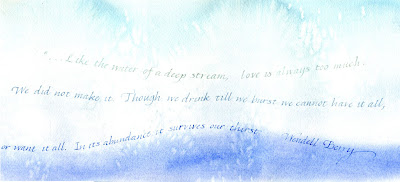 "....Like the water of a deep stream, love is always too much.
We did not make it. Though we drink till we burst we cannot have it all,
or want it all. In its abundance it survives our thirst. Wendell Berry